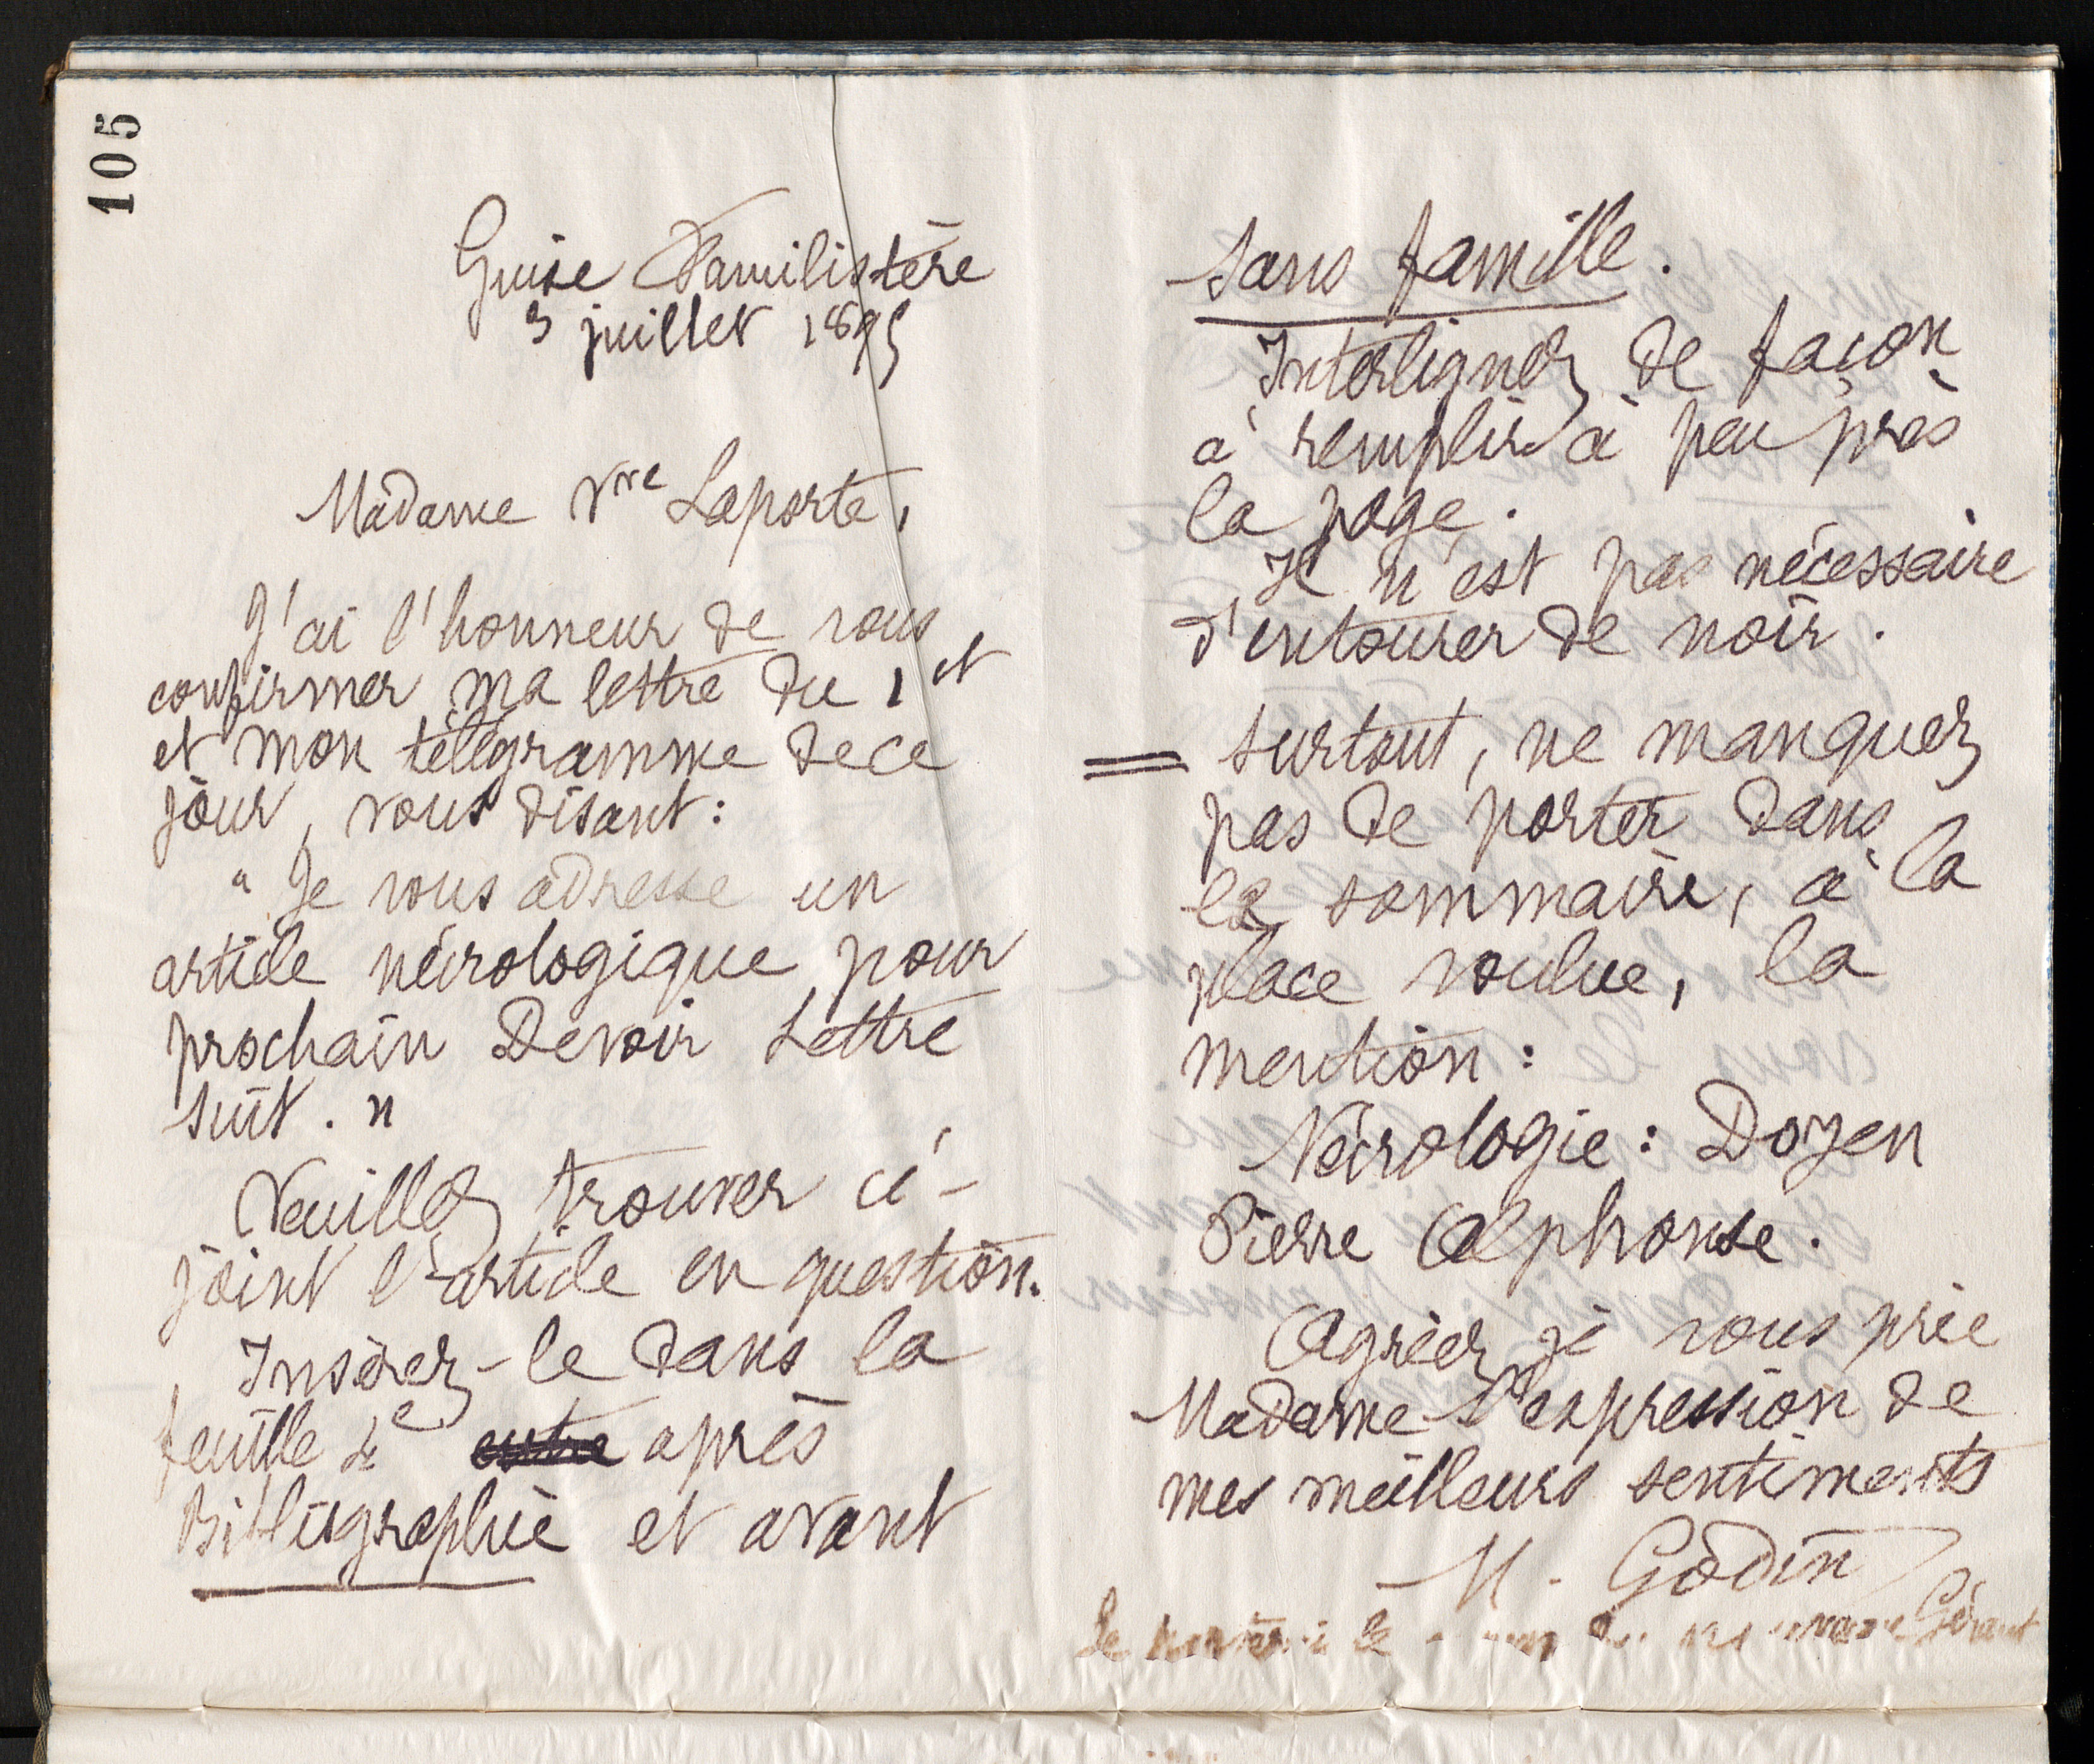 105
Guise Familistère
3 juillet 1895
Madame Vve Laporte,
J'ai l'honneur de vous
confirmer ma lettre du 1er
et mon télégramme de ce
jour, vous disant :
" Je vous adresse un
article nécrologique pour
prochain Devoir Lettre
suit. "
Veuillez trouver ci-
joint l'article en question.
Insérez-le dans la
feuille 4e entre après
Bibliographie et avant
Sans famille.
Interlignez de façon
à remplir à peu près
la page.
Il n'est pas nécessaire
d'entourer de noir.
= Surtout, ne manquez
pas de porter dans
le sommaire, à la
place voulue, la
mention :
Nécrologie : Doyen
Pierre Alphonse.
Agréez je vous prie
Madame l'expression de
mes meilleurs sentiments
M. Godin
Gérant